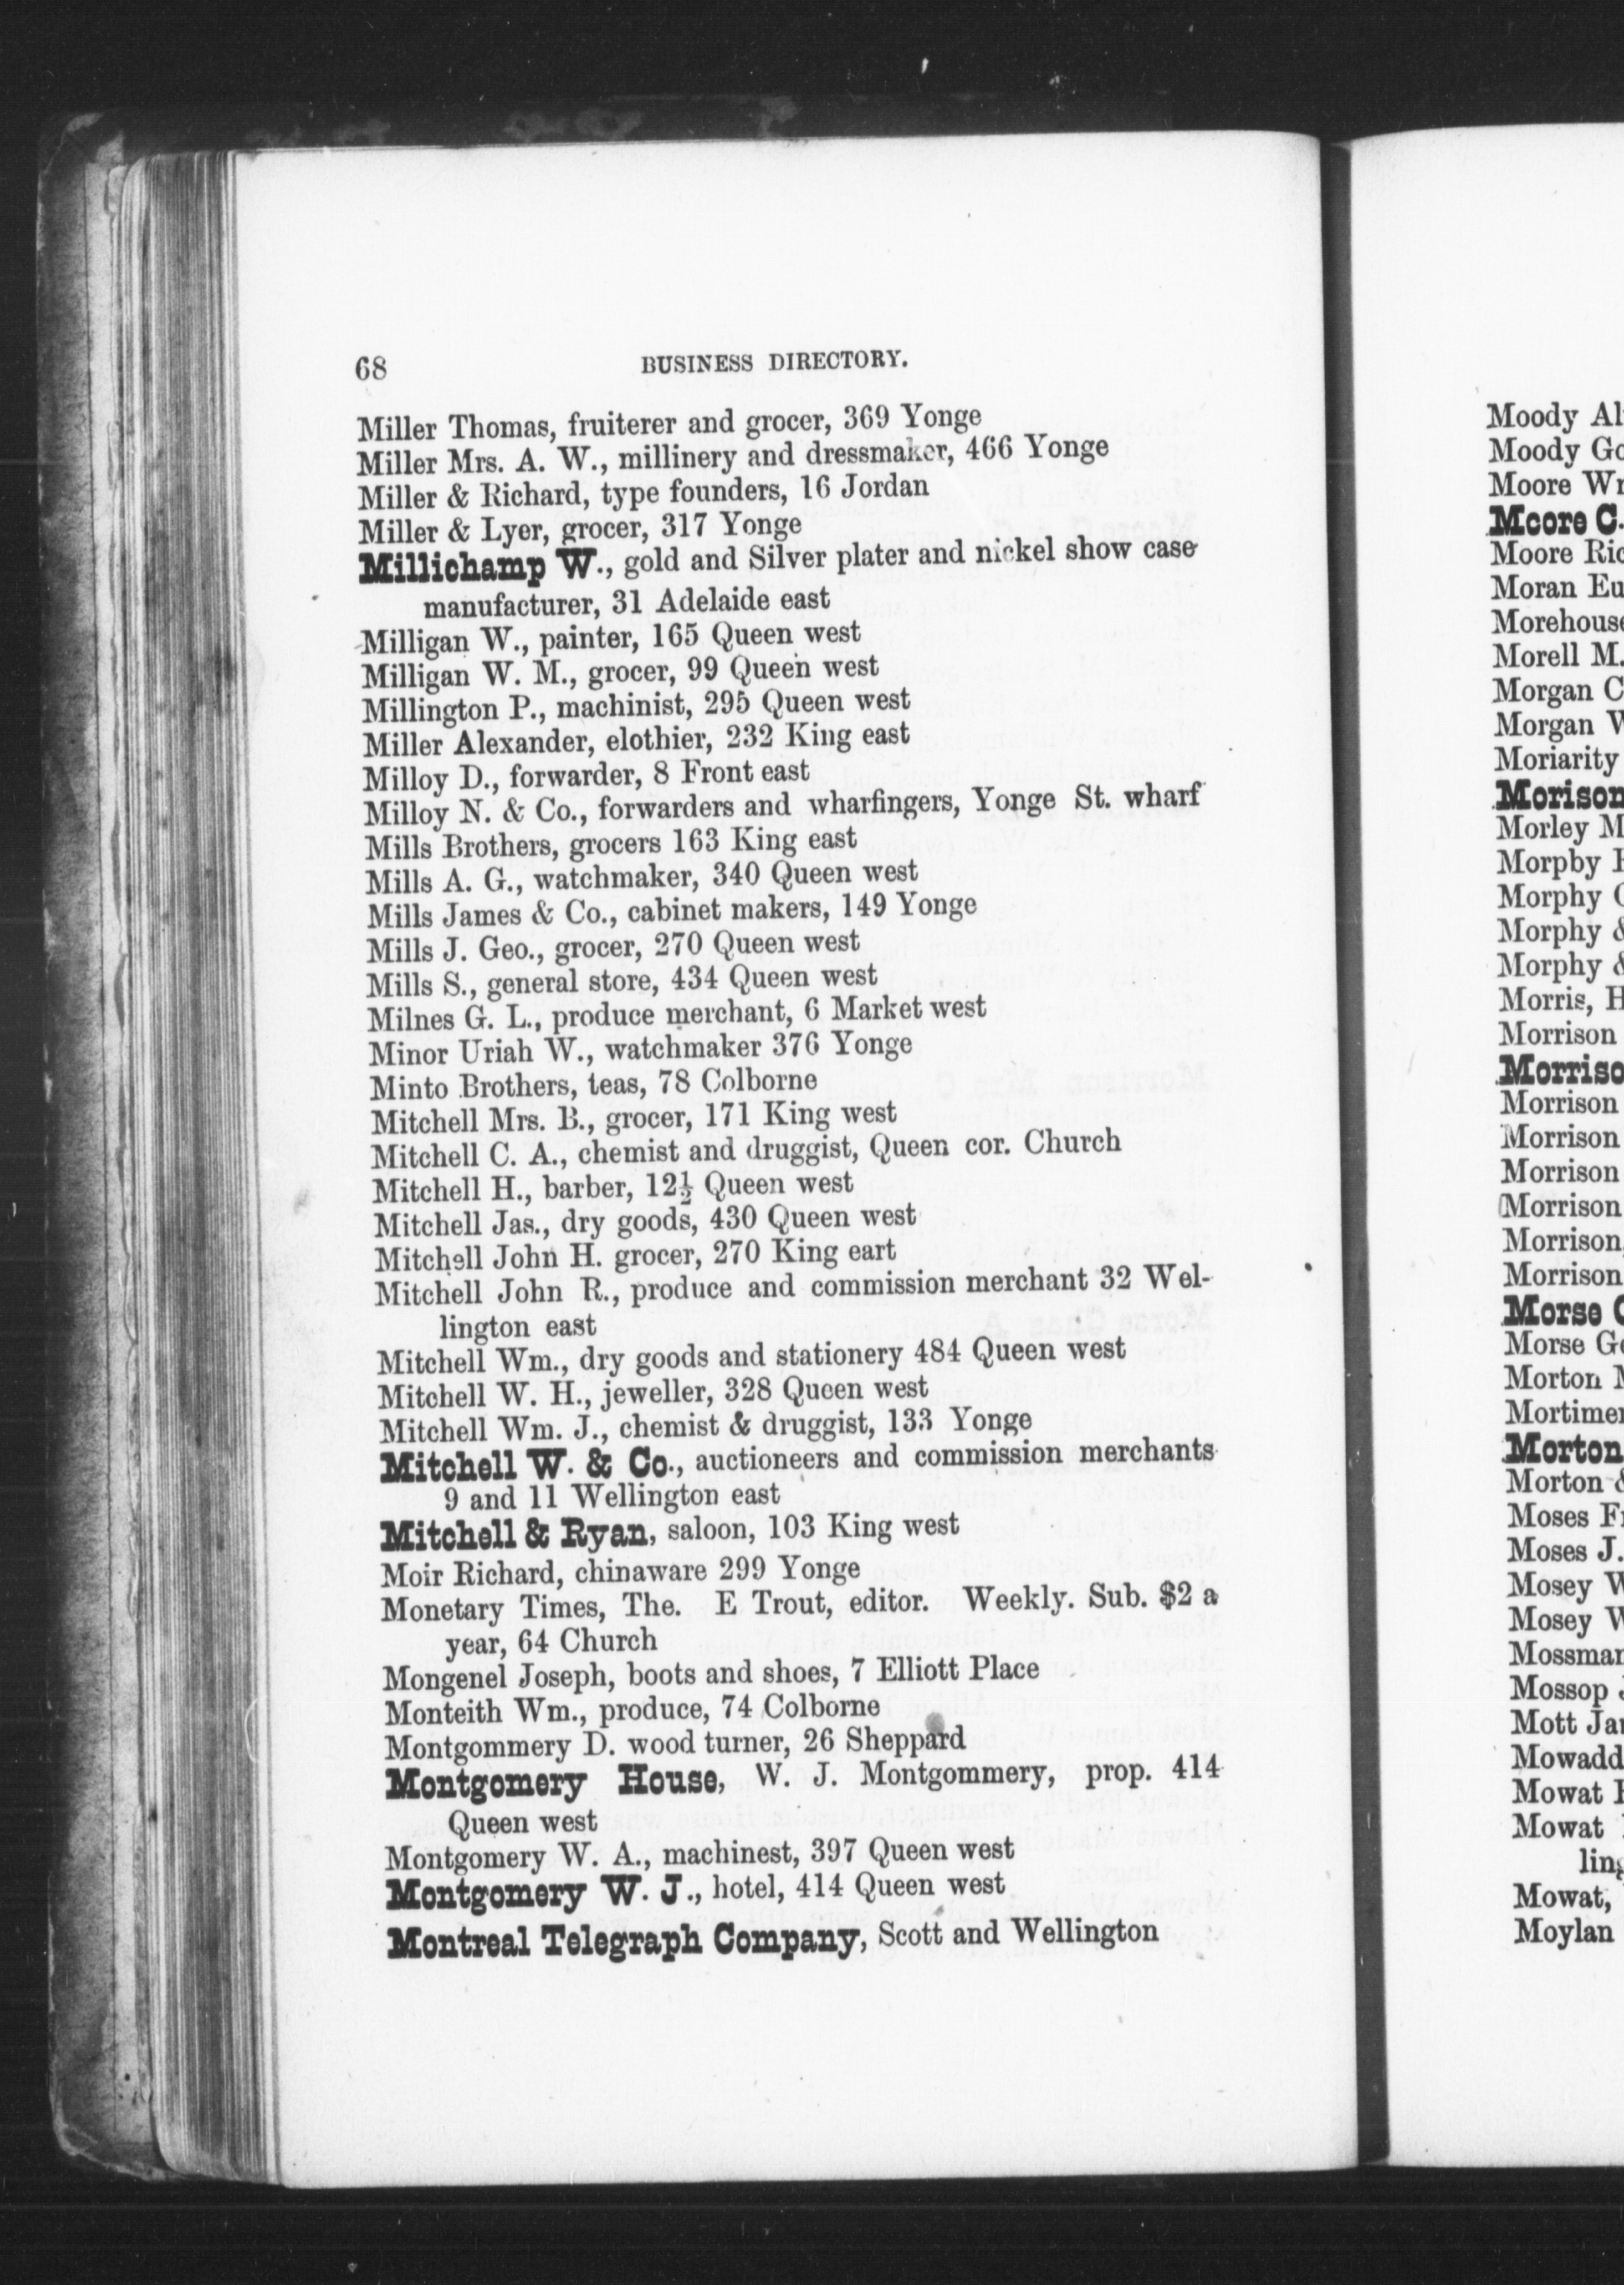 68 BUSINESS DIRECTORY.
Miller Thomas, fruiterer and grocer, 369 Yonge
Miller Mrs. A. W., millinery and dressmaker, 466 Yonge
Miller & Richard, type founders, 16 Jordan
Miller & Lyer, grocer, 317 Yonge
Millichamp W., gold and Silver plater and nickel show case
manufacturer, 31 Adelaide east
Milligan W., painter, 165 Queen west
Milligan W. M., grocer, 99 Queen west
Millington P., machinist, 295 Queen west
Miller Alexander, elothier, 232 King east
Milloy D., forwarder, 8 Front east
Milloy N. & Co., forwarders and wharfingers, Yonge St. wharf
Mills Brothers, grocers 163 King east
Mills A. G., watchmaker, 340 Queen west
Mills James & Co., cabinet makers, 149 Yonge
Mills J. Geo., grocer, 270 Queen west
Mills S., general store, 434 Queen west
Milnes G. L., produce merchant, 6 Market west
Minor Uriah W., watchmaker 376 Yonge
Minto Brothers, teas, 78 Colborne
Mitchell Mrs. B., grocer, 171 King west
Mitchell C. A., chemist and druggist, Queen cor. Church
Mitchell H., barber, 12½ Queen west
Mitchell Jas., dry goods, 430 Queen west
Mitchell John H. grocer, 270 King eart
Mitchell John R., produce and commission merchant 32 Wel-
lington east
Mitchell Wm., dry goods and stationery 484 Queen west
Mitchell W. H., jeweller, 328 Queen west
Mitchell Wm. J., chemist & druggist, 133 Yonge
Mitchell W. & Co., auctioneers and commission merchants
9 and 11 Wellington east
Mitchell & Ryan, saloon, 103 King west
Moir Richard, chinaware 299 Yonge
Monetary Times, The. E Trout, editor. Weekly. Sub. $2 a
year, 64 Church
Mongenel Joseph, boots and shoes, 7 Elliott Place
Monteith Wm., produce, 74 Colborne
Montgommery D. wood turner, 26 Sheppard
Montgomery House, W. J. Montgommery, prop. 414
Queen west
Montgomery W. A., machinest, 397 Queen west
Montgomery W. J., hotel, 414 Queen west
Montreal Telegraph Company, Scott and Wellington
Moody
Moody
Moore
Moore C.
Moore
Moran
Morell M.
Morgan
Morgan
Moriarity
Morley
Morpby
Morphy
Morphy
Morphy
Morris,
Morrison
Morrison
Morrison
Morrison
Morrison
Morrison,
Morrison
Morse
Morse
Morton
Morton
Morton
Moses
Moses J.
Mosey
Mosey
Mossop
Mott
Mowat
Mowat
Mowat,
Moylan